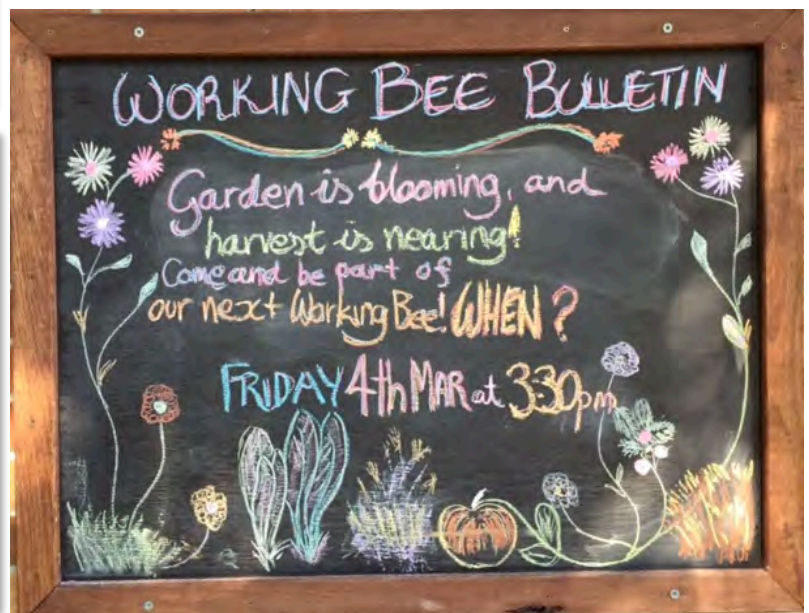 WORKING BEE BULLETIN
Garden is blooming, and
harvest is nearing!
Come and be part of
our next Working Bee! WHEN?
FRIDAY 4th MAR at 3:30pm